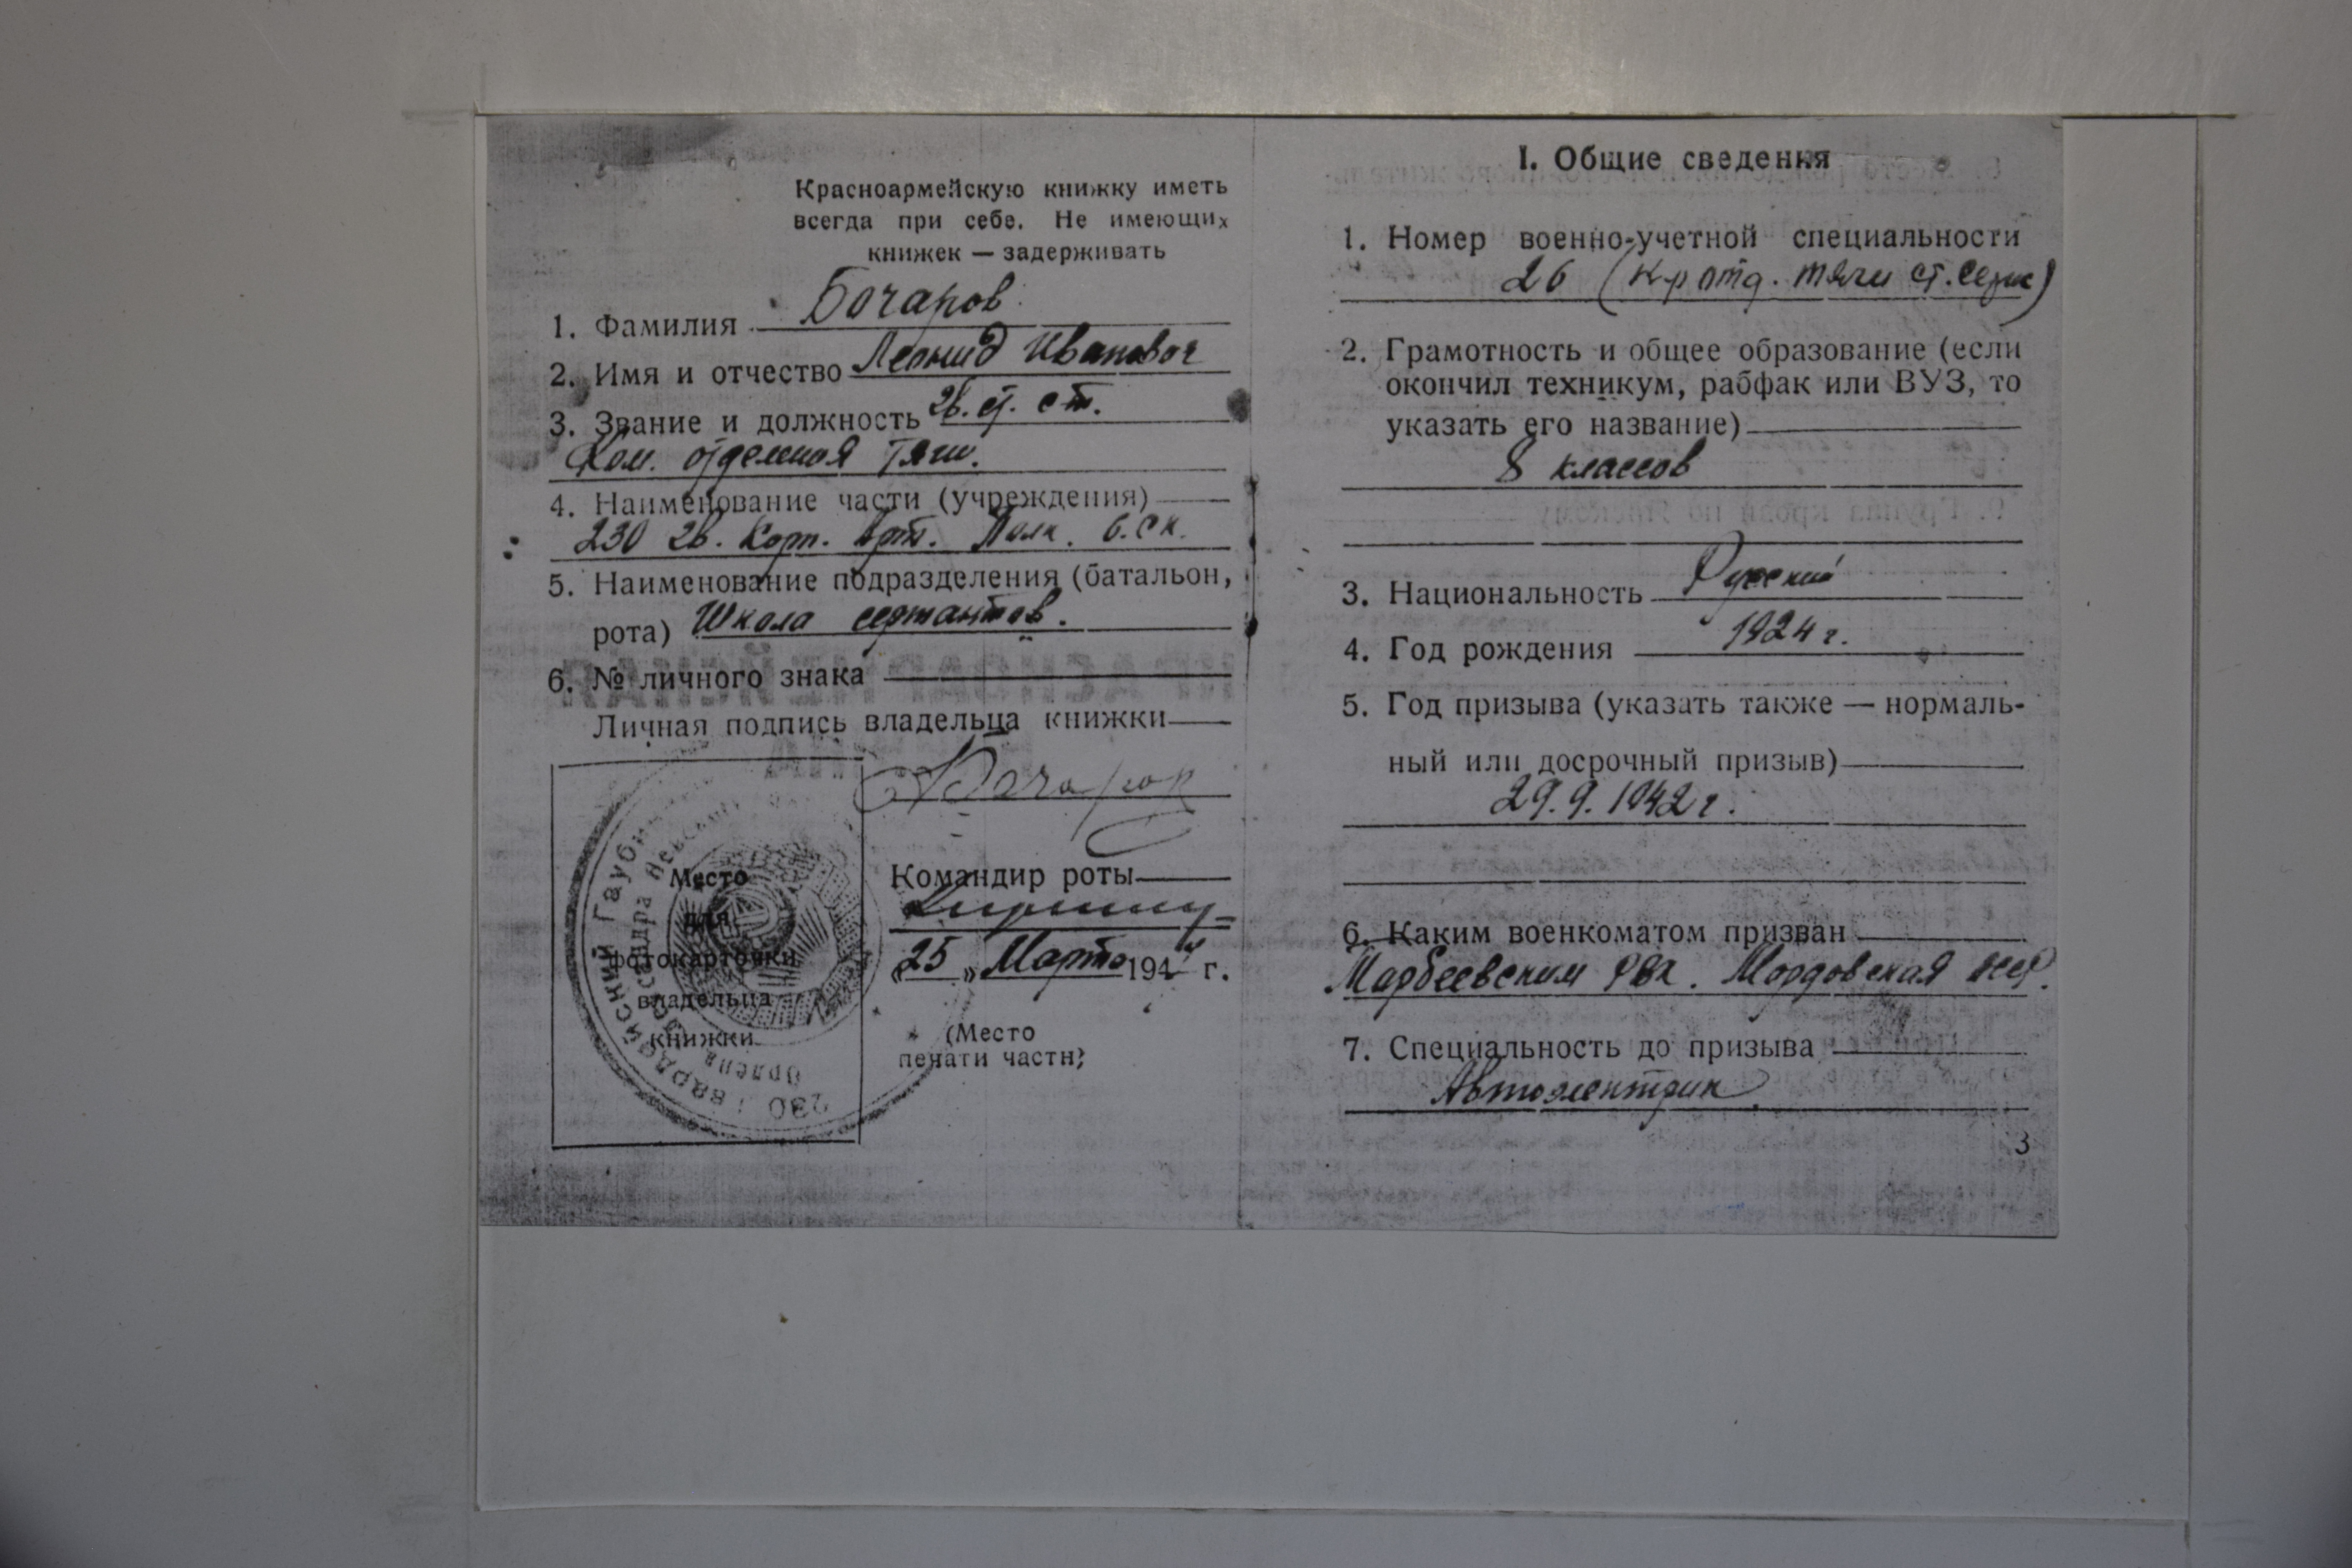 Красноармейскую книжку иметь
всегда при себе. Не имеющих
книжек — задерживать
1. Фамилия Бочаров
2. Имя и отчество Леонид Иванович
3. Звание и должность
Ком. отделения тяги.
4. Наименование части (учреждения)
230 гв. Корп. Арт. Полк. 6. ск.
5. Наименование подразделения (батальон,
рота) Школа сержантов.
6. № личного знака
Личная подпись владельца книжки
Бочаров
Место
для
фотокарточки
владельца
книжки
230 Гвардейский Гаубич
Ордена Александра Невского
Командир роты
«25» Марта 194 г.
(Место
печати части)
I. Общие сведения
1. Номер военно-учетной специальности
26 (тяги ст.
2. Грамотность и общее образование (если
окончил техникум, рабфак или ВУЗ, то
указать его название)
8 классов
3. Национальность Русский
4. Год рождения 1924 г.
5. Год призыва (указать также — нормаль-
ный или досрочный призыв)
29.9.1942 г.
6. Каким военкоматом призван
РВК. Мордовская
7. Специальность до призыва
Автоэлектрик
3